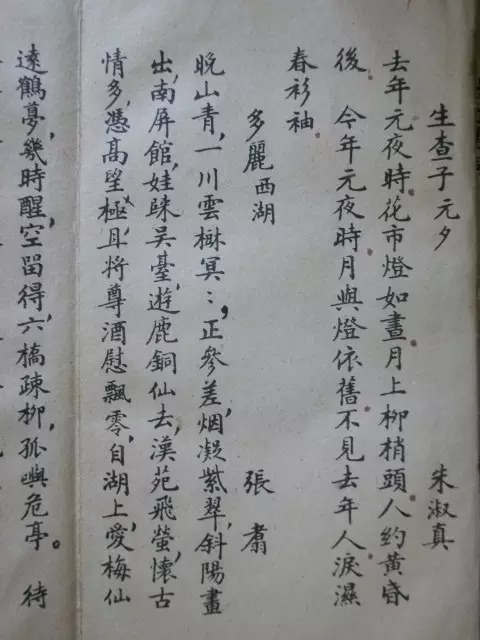 生查子元夕 朱淑真
去年元夜時花市燈如晝月上柳梢頭人約黃昏
後 今年元夜時月與燈依舊不見去年人淚濕
春衫袖
多麗西湖 張翥
晚山青,一川雲樹冥〻,正參差烟凝紫翠,斜陽畫
出,南屏館,娃歸吳臺,遊鹿銅仙去,漢苑飛螢,懷古
情多,憑高望極,且將尊酒慰飄零,自湖上,愛梅仙
遠,鶴夢,幾時醒,空畱得,六橋疎柳,孤嶼危亭。 待